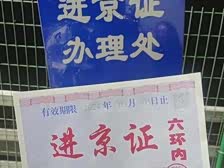 进京证
办理处
有效期限 止
进京证
六环内